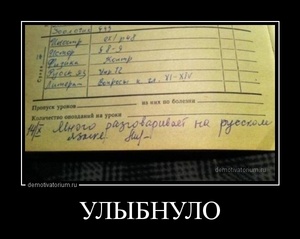 Зоология §43
§8-9
Физика Контр
Русск яз Упр.12
Литерат. Вопросы к гл. XI-XIV
Пропуск уроков из них по болезни
Количество опозданий на уроки
Много разговаривает на русском
языке!
demotivatorium.ru
demotivatorium.ru
УЛЫБНУЛО